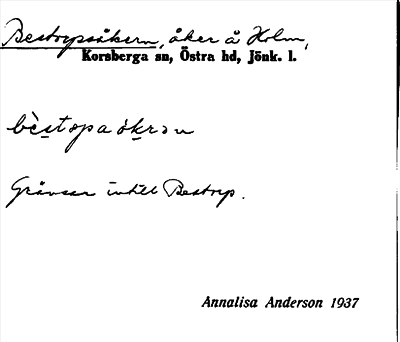 Bestorpsåkern, åker å Holm,
Korsberga sn, Östra hd, Jönk. l.
bèstɔpaókrɔn
Gränsar intill Bestorp.
Annalisa Anderson 1937